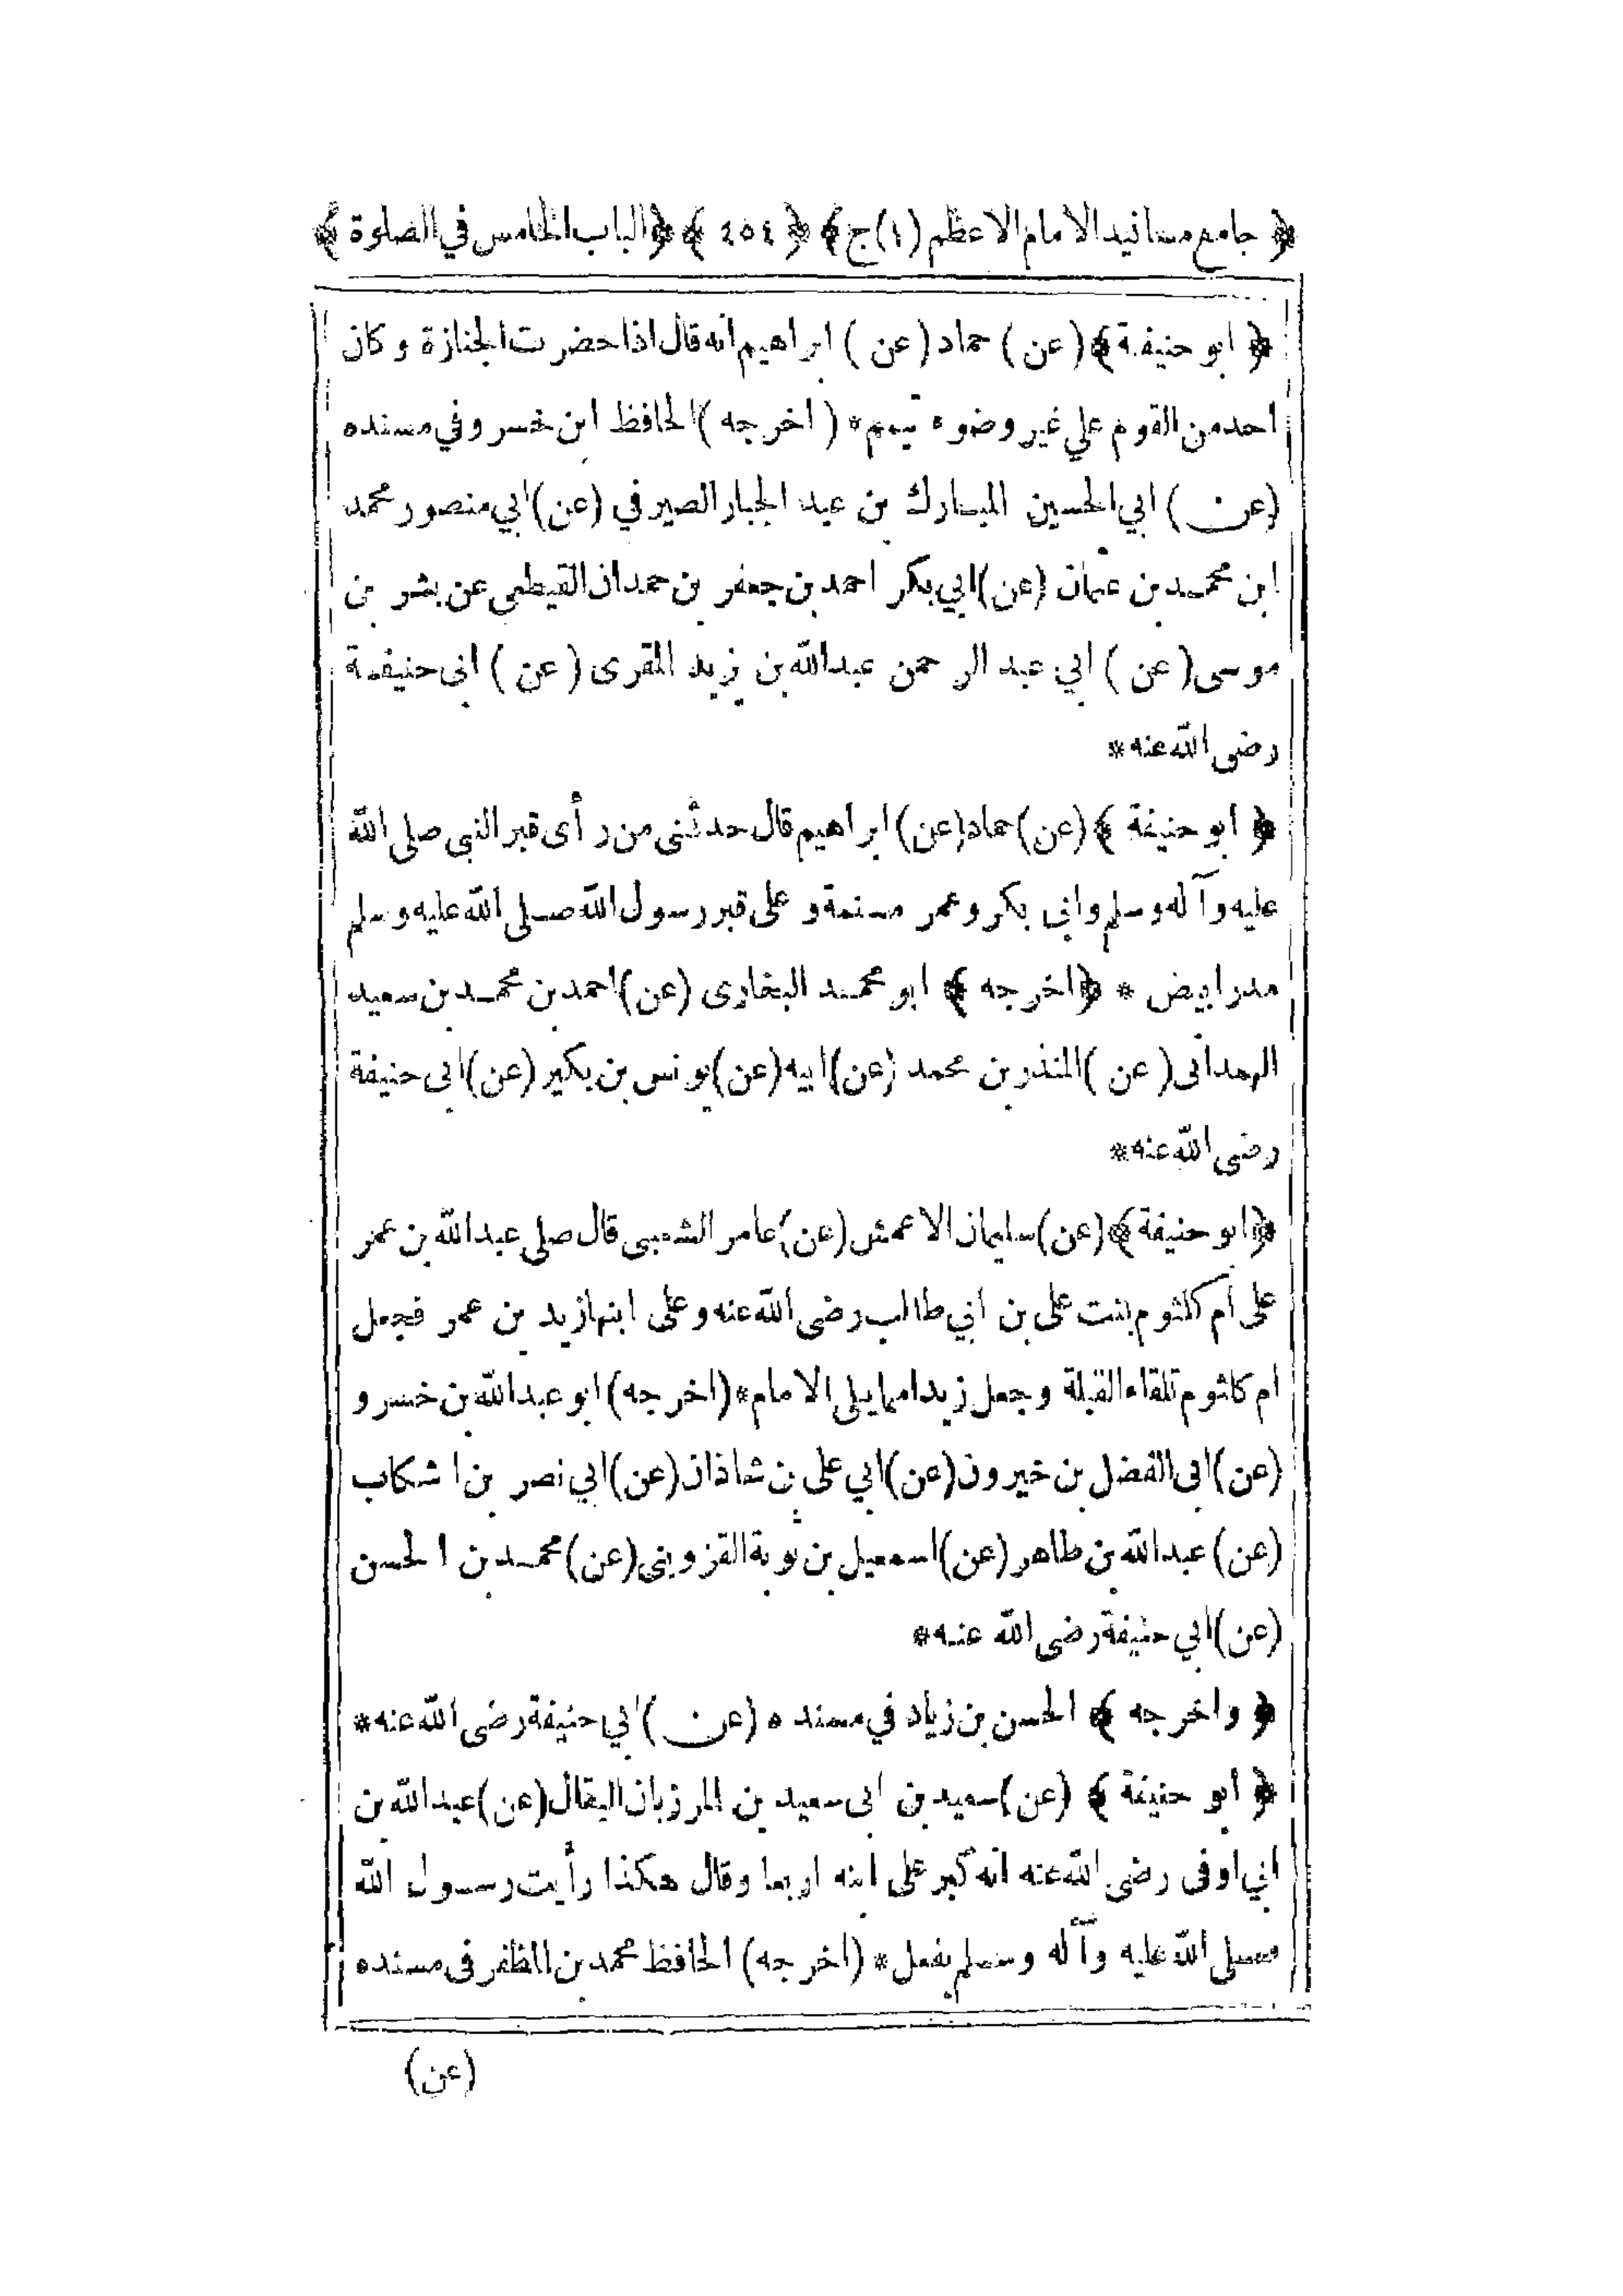 ﴿ جامع مسانيد الامام الاعظم (١) ج ﴾ ﴿ ٤٥٤ ﴾ ﴿ الباب الخامس في الصلوة ﴾
﴿ ابو حنيفة ﴾ (عن) حماد (عن) ابراهيم انه قال اذا حضرت الجنازة وكان
احد من القوم على غير وضوء تيمم * (اخرجه) الحافظ ابن خسرو في مسنده
(عن) ابي الحسين المبارك بن عبد الجبار الصيرفي (عن) ابي منصور محمد
ابن محمد بن عثمان (عن) ابي بكر احمد بن جعفر بن حمدان القيطعي عن بشر بن
موسى (عن) ابي عبد الرحمن عبد الله بن يزيد المقرى (عن) ابى حنيفة
رضى الله عنه *
﴿ ابو حنيفة ﴾ (عن) حماد (عن) ابراهيم قال حدثنى من رأى قبر النبي صلى الله
عليه وآله وسلم وابى بكر وعمر مسنمة وعلى قبر رسول الله صلى الله عليه وسلم
مدر ابيض * ﴿ اخرجه ﴾ ابو محمد البخارى (عن) احمد بن محمد بن سعيد
الهمدانى (عن) المنذر بن محمد (عن) ابيه (عن) يونس بن بكير (عن) ابى حنيفة
رضى الله عنه *
﴿ ابو حنيفة ﴾ (عن) سليمان الاعمش (عن) عامر الشعبى قال صلى عبد الله بن عمر
على ام كلثوم بنت على بن ابي طالب رضى الله عنه وعلى ابنها زيد بن عمر فجعل
ام كلثوم تلقاء القبلة وجعل زيدا مما يلى الامام * (اخرجه) ابو عبد الله بن خسرو
(عن) ابى الفضل بن خيرون (عن) ابي على بن شاذان (عن) ابي نصر بن اشكاب
(عن) عبد الله بن طاهر (عن) اسمعيل بن توبة القزوينى (عن) محمد بن الحسن
(عن) ابي حنيفة رضى الله عنه *
﴿ واخرجه ﴾ الحسن بن زياد في مسنده (عن) ابي حنيفة رضى الله عنه *
﴿ ابو حنيفة ﴾ (عن) سعيد بن ابى سعيد بن المرزبان البقال (عن) عبد الله بن
ابي اوفى رضى الله عنه انه كبر على ابنه اربعا وقال هكذا رأيت رسول الله
صلى الله عليه وآله وسلم يفعل * (اخرجه) الحافظ محمد بن المظفر فى مسنده
(عن)